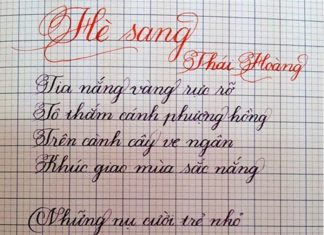 Hè sang
Thái Hoàng
Tia nắng vàng rực rỡ
Tô thắm cánh phượng hồng
Trên cành cây ve ngân
Khúc giao mùa sắc nắng
Những nụ cười trẻ nhỏ